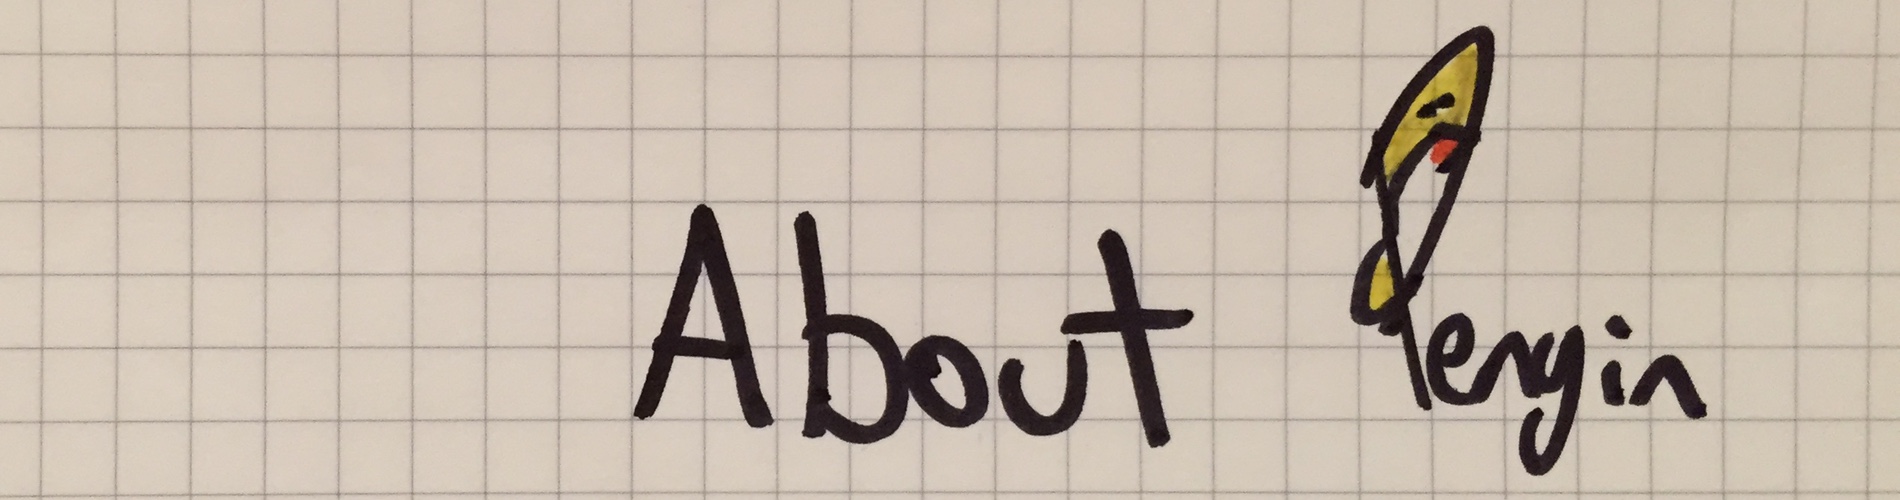 About Pengin